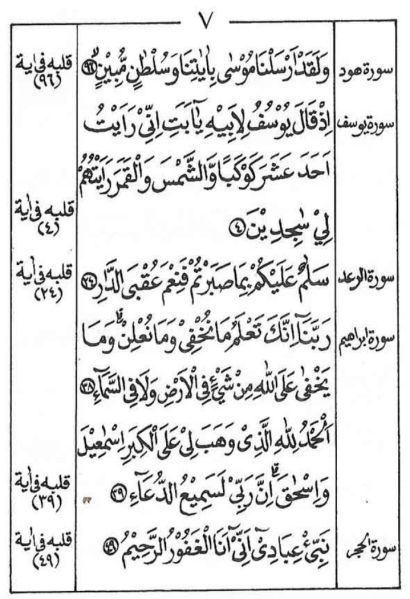 ٧
سورة هود وَلَقَدْ اَرْسَلْنَا مُوْسٰى بِاٰيٰتِنَا وَسُلْطٰنٍ مُّبِيْنٍ ﴿٩٦﴾ قلبه فى اية (٩٦)
سورة يوسف اِذْ قَالَ يُوْسُفُ لِاَبِيْهِ يٰٓاَبَتِ اِنِّيْ رَاَيْتُ
اَحَدَ عَشَرَ كَوْكَبًا وَّالشَّمْسَ وَالْقَمَرَ رَاَيْتُهُمْ
لِيْ سٰجِدِيْنَ ﴿٤﴾ قلبه فى اية (٤)
سورة الرعد سَلٰمٌ عَلَيْكُمْ بِمَا صَبَرْتُمْ فَنِعْمَ عُقْبَى الدَّارِ ﴿٢٤﴾ قلبه فى اية (٢٤)
سورة ابراهيم رَبَّنَآ اِنَّكَ تَعْلَمُ مَا نُخْفِيْ وَمَا نُعْلِنُ وَمَا
يَخْفٰى عَلَى اللّٰهِ مِنْ شَيْءٍ فِي الْاَرْضِ وَلَا فِي السَّمَآءِ ﴿٣٨﴾
اَلْحَمْدُ لِلّٰهِ الَّذِيْ وَهَبَ لِيْ عَلَى الْكِبَرِ اِسْمٰعِيْلَ
وَاِسْحٰقَ اِنَّ رَبِّيْ لَسَمِيْعُ الدُّعَآءِ ﴿٣٩﴾ قلبه فى اية (٣٩)
سورة الحجر نَبِّئْ عِبَادِيْٓ اَنِّيْٓ اَنَا الْغَفُوْرُ الرَّحِيْمُ ﴿٤٩﴾ قلبه فى اية (٤٩)